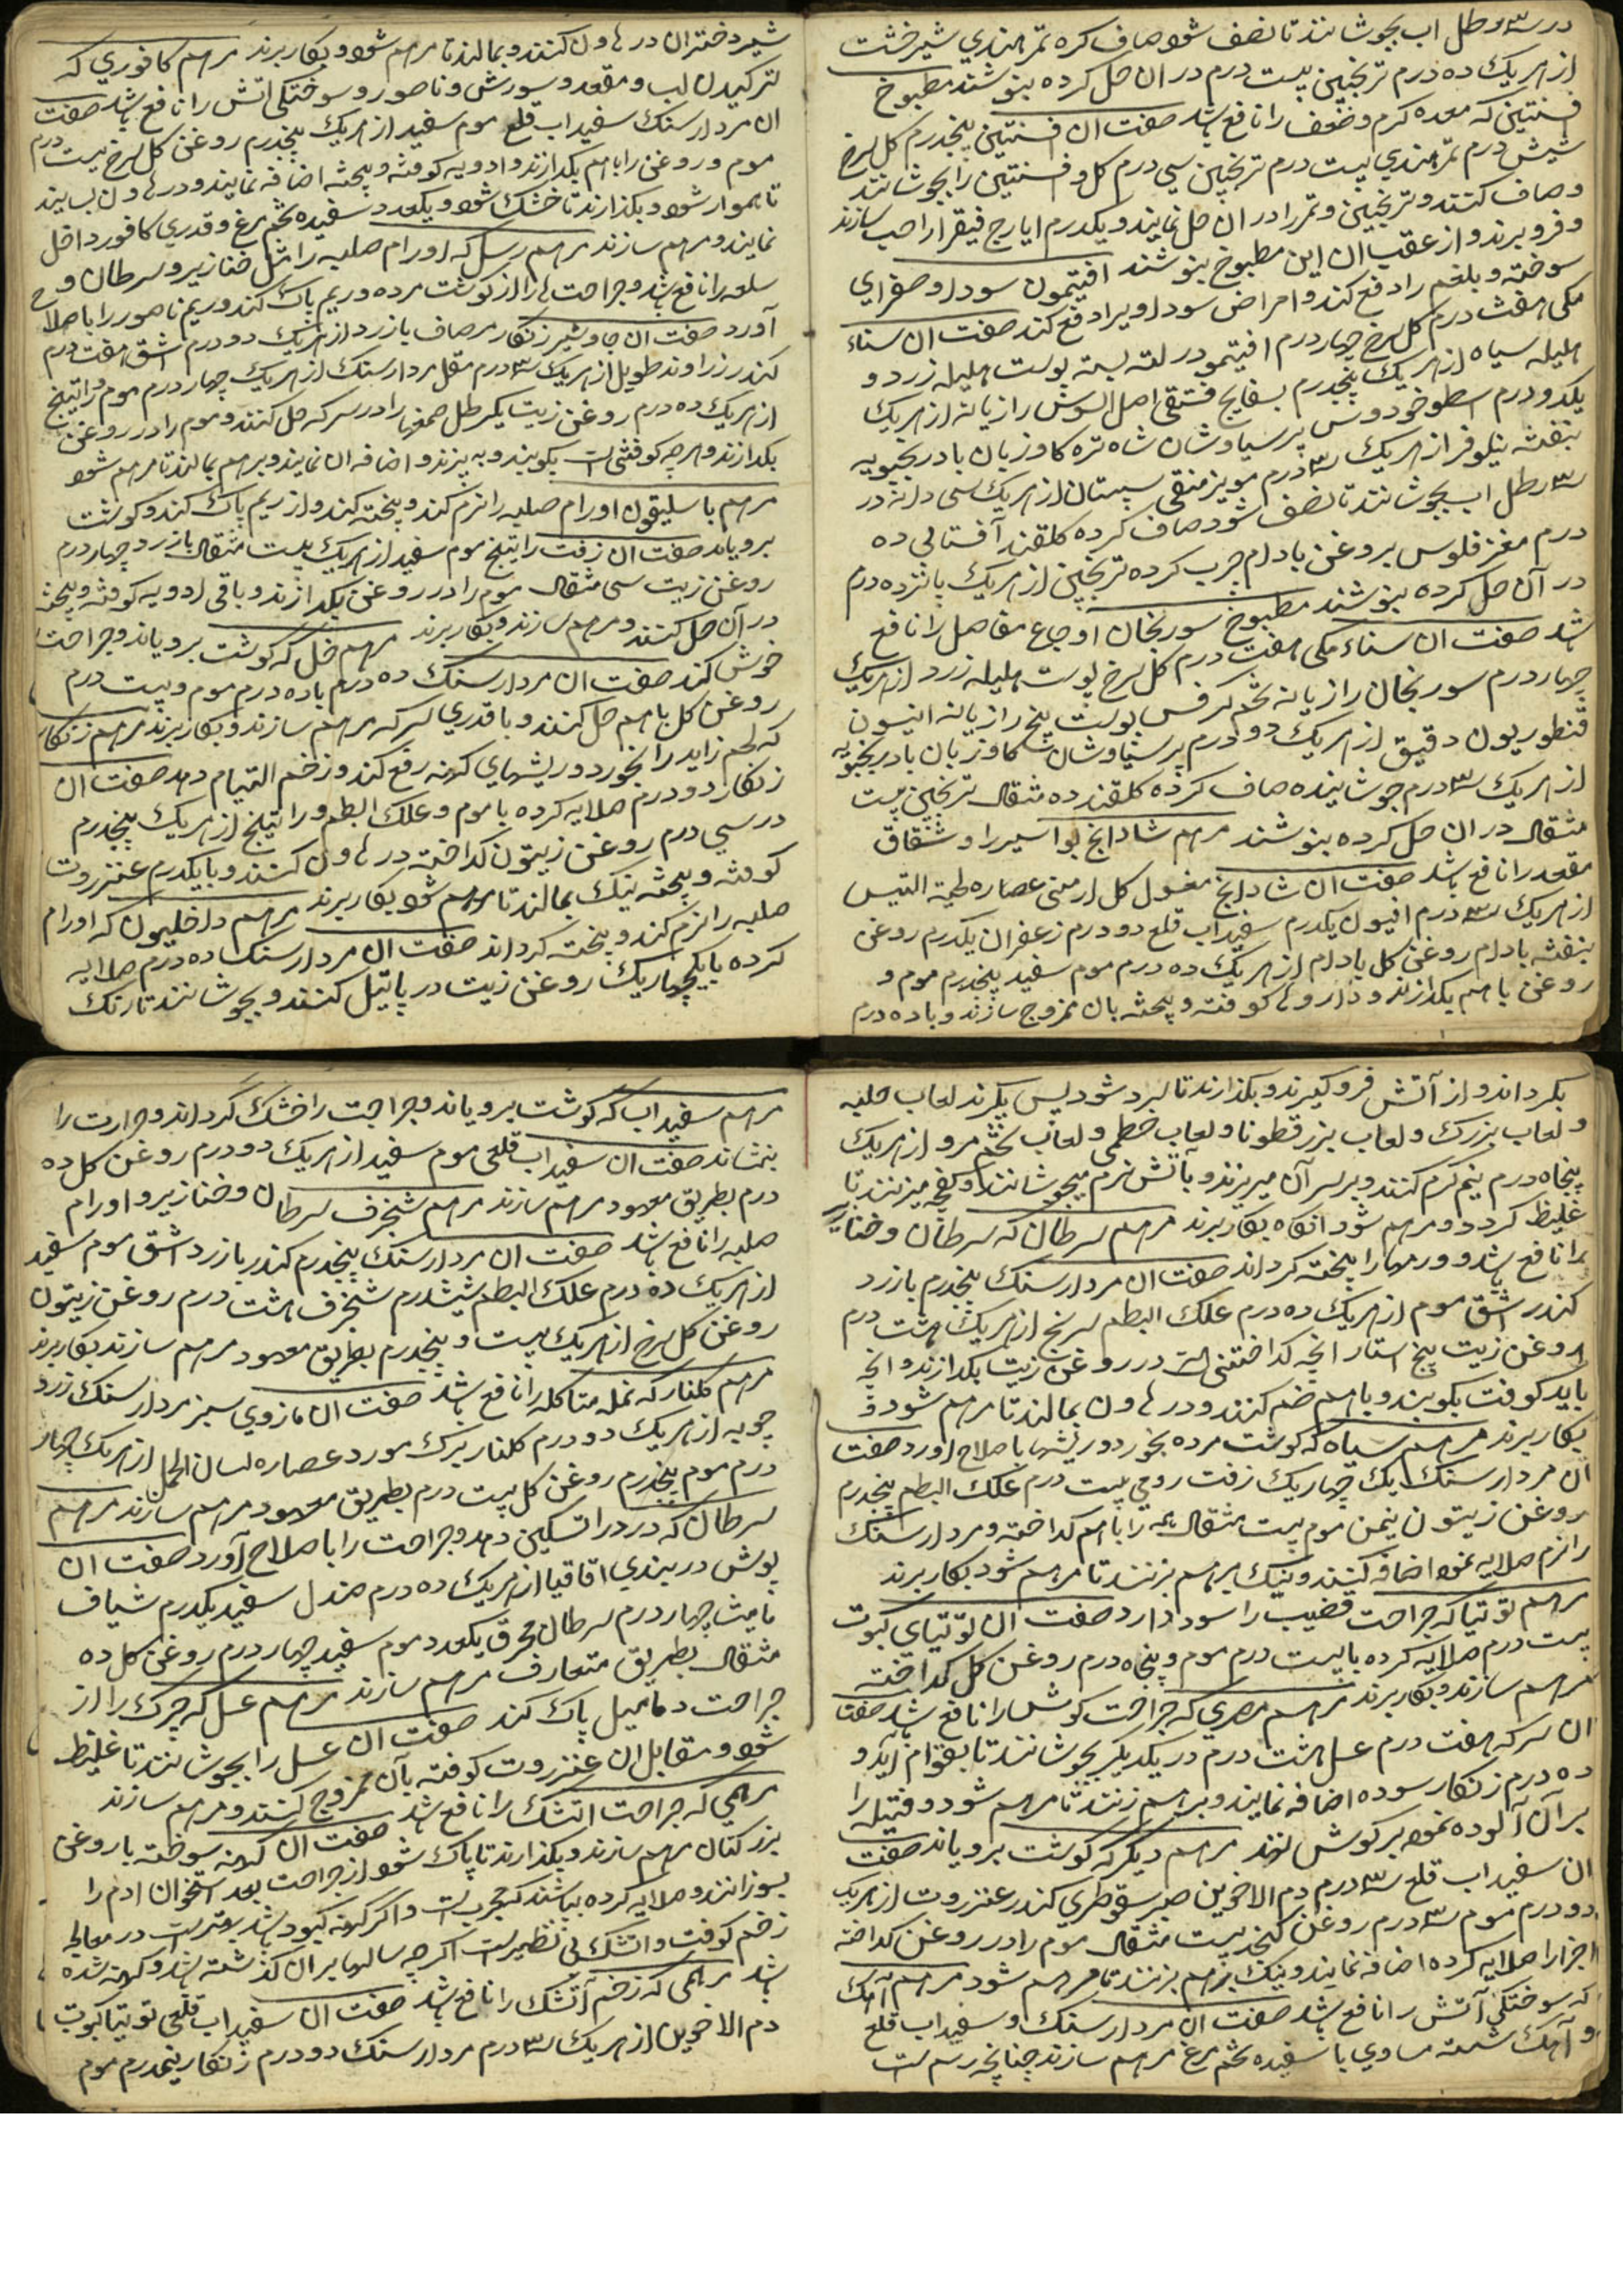 در سه رطل اب بجوشانند تا نصف شود صاف کرده تمر هندی شیرخشت
از هر یک ده درم ترنجبین بیست درم در ان حل کرده بنوشند مطبوخ
فسنتین که معده کرم و ضعف را نافع باشد صفت ان افسنتین پنجدرم کل سرخ
شیش درم تمر هندی بیست درم ترنجبین سی درم کل و فسنتین را بجوشانند
و صاف کنند و ترنجبین و تمر را در ان حل نمایند و یکدرم ایارج فیقرا را حب سازند
و فرو برند و از عقب ان این مطبوخ بنوشند افتیمون سودا و صفرای
سوخته و بلغم را دفع کند و امراض سوداویرا دفع کند صفت ان سناء
مکی هفت درم کل سرخ چهار درم افتیمو در لته بسته پوست هلیله زرد و
هلیله سیاه از هر یک پنجدرم بسفایج فستقی اصل السوس رازیانه از هر یک
یکدو درم اسطوخودوس پرسیاوشان شاه تره کاوزبان بادرنجبویه
بنفشه نیلوفر از هر یک سه درم مویز منقی سپستان از هر یک سی دانه در
سه رطل اب بجوشانند تا نصف شود صاف کرده کلقند آفتابی ده
درم مغز فلوس بروغن بادام چرب کرده ترنجبین از هر یک پانزده درم
در آن حل کرده بنوشند مطبوخ سورنجان اوجاع مفاصل را نافع
باشد صفت ان سناء مکی هفت درم کل سرخ پوست هلیله زرد از هر یک
چهار درم سورنجان رازیانه تخم کرفس پوست بیخ رازیانه انیسون
قنطوریون دقیق از هر یک دو درم پرسیاوشان کاوزبان بادرنجبویه
از هر یک سه درم جوشانیده صاف کرده کلقند ده مثقال ترنجبین بیست
مثقال در ان حل کرده بنوشند مرهم شادانج بواسیر را و شقاق
مقعد را نافع باشد صفت ان شادانج مغسول کل ارمنی عصاره لحیة التیس
از هر یک سه درم افیون یکدرم سفیداب قلع دو درم زعفران یکدرم روغن
بنفشه بادام روغن کل بادام از هر یک ده درم موم سفید پنجدرم موم و
روغن باهم بکدازند و داروها کوفته و بیخته بان ممزوج سازند و با ده درم
شیر دختران در هاون کنند و بمالند تا مرهم شود و بکار برند مرهم کافوری که
ترکیدن لب و مقعد و سورش و ناصور و سوختکی اتش را نافع باشد صفت
ان مردارسنک سفیداب قلع موم سفید از هر یک پنجدرم روغن کل سرخ بیست درم
موم و روغن را باهم بکدازند و ادویه کوفته و بیخته اضافه نمایند و در هاون بسایند
تا هموار شود و بکذارند تا خشک شود و یکعدد سفیده تخم مرغ و قدری کافور داخل
نمایند و مرهم سازند مرهم رسل که اورام صلبه را مثل خنازیر و سرطان و
سلعه را نافع باشد و جراحت ها را از کوشت مرده و ریم پاک کند و ریم ناصور را باصلاح
آورد صفت ان جاوشیر زنکار مر صاف بازرد از هر یک دو درم اشق هفت درم
کندر زراوند طویل از هر یک سه درم مقل مردارسنک از هر یک چهار درم موم راتینج
از هر یک ده درم روغن زیت یکرطل صمغها را در سرکه حل کنند و موم را در روغن
بکدازند و هرچه کوفتنی است بکوبند و به بیزند و اضافه ان نمایند و برهم بمالند تا مرهم شود
مرهم باسلیقون اورام صلبه را نرم کند و پخته کند و از ریم پاک کند و کوشت
برویاند صفت ان زفت راتینج موم سفید از هر یک بیست مثقال بازرد چهار درم
روغن زیت سی مثقال موم را در روغن بکدازند و باقی ادویه کوفته و بیخته
در آن حل کنند و مرهم سازند و بکار برند مرهم خل که کوشت برویاند و جراحت
خوش کند صفت ان مردارسنک ده درم با ده درم موم و بیست درم
روغن کل باهم حل کنند و با قدری سرکه مرهم سازند و بکار برند مرهم زنکار
که لحم زاید را بخورد و ریشهای کهنه رفع کند و زخم التیام دهد صفت ان
زنکار دو درم صلایه کرده با موم و علک البطم و راتینج از هر یک پنجدرم
در سی درم روغن زیتون کداخته در هاون کنند و با یکدرم عنزروت
کوفته و بیخته نیک بمالند تا مرهم شود بکار برند مرهم داخلیون که اورام
صلبه را نرم کند و پخته کرداند صفت ان مردارسنک ده درم صلایه
کرده با یکچهاریک روغن زیت در پاتیل کنند و بجوشانند تا رنک
بکرداند و از آتش فرو کیرند و بکذارند تا سرد شود پس بکیرند لعاب حلبه
و لعاب بزرک و لعاب بزرقطونا و لعاب خطمی و لعاب تخم مرو از هر یک
پنجاه درم نیم کرم کنند و بر سر آن میریزند و باتش نرم میجوشانند و کفچه میزنند تا
غلیظ کردد و مرهم شود انکاه بکار برند مرهم سرطان که سرطان و خنازیر
را نافع باشد و ورمها را پخته کرداند صفت ان مردارسنک پنجدرم بازرد
کندر اشق موم از هر یک ده درم علک البطم سرنج از هر یک هشت درم
روغن زیت پنج استار انچه کداختنی است در روغن زیت بکدازند و انچه
باید کوفت بکوبند و باهم ضم کنند و در هاون بمالند تا مرهم شود و
بکار برند مرهم سیاه که کوشت مرده بخورد و ریشها باصلاح اورد صفت
ان مردارسنک یک چهاریک زفت رومی بیست درم علک البطم پنجدرم
روغن زیتون نیمن موم بیست مثقال همه را باهم کداخته و مردارسنک
را نرم صلایه نموده اضافه کنند و نیک برهم بزنند تا مرهم شود بکار برند
مرهم توتیا که جراحت قضیب را سود دارد صفت ان توتیای کبوت
بیست درم صلایه کرده با بیست درم موم و پنجاه درم روغن کل کداخته
مرهم سازند و بکار برند مرهم مصری که جراحت کوش را نافع باشد صفت
ان سرکه هفت درم عسل هشت درم در یکدیکر بجوشانند تا بقوام آید و
ده درم زنکار سوده اضافه نمایند و برهم زنند تا مرهم شود و فتیله را
بر آن آلوده نموده بر کوش نهند مرهم دیکر که کوشت برویاند صفت
ان سفیداب قلع سه درم دم الاخوین صبر سقوطری کندر عنزروت از هر یک
دو درم موم سه درم روغن کنجد بیست مثقال موم را در روغن کداخته
اجزا را صلایه کرده اضافه نمایند و نیک برهم بزنند تا مرهم شود مرهم آهک
که سوختکی آتش را نافع باشد صفت ان مردارسنک و سفیداب قلع
و آهک شسته مساوی با سفیده تخم مرغ مرهم سازند چنانچه رسم است
مرهم سفیداب که کوشت برویاند و جراحت را خشک کرداند و حرارت را
بنشاند صفت ان سفیداب قلعی موم سفید از هر یک دو درم روغن کل ده
درم بطریق معهود مرهم سازند مرهم شنجرف سرطان و خنازیر و اورام
صلبه را نافع باشد صفت ان مردارسنک پنجدرم کندر بازرد اشق موم سفید
از هر یک ده درم علک البطم شیشدرم شنجرف هشت درم روغن زیتون
روغن کل سرخ از هر یک بیست و پنجدرم بطریق معهود مرهم سازند بکار برند
مرهم کلنار که نمله متاکله را نافع باشد صفت ان مازوی سبز مردارسنک زرد
چوبه از هر یک دو درم کلنار برک مورد عصاره لسان الحمل از هر یک چهار
درم موم پنجدرم روغن کل بیست درم بطریق معهود مرهم سازند مرهم
سرطان که درد را تسکین دهد و جراحت را باصلاح آورد صفت ان
پوش دربندی اقاقیا از هر یک ده درم صندل سفید یکدرم شیاف
مامیث چهار درم سرطان محرق یکعدد موم سفید چهار درم روغن کل ده
مثقال بطریق متعارف مرهم سازند مرهم عسل که چرک را از
جراحت دمامیل پاک کند صفت ان عسل را بجوشانند تا غلیظ
شود و مقابل ان عنزروت کوفته بآن ممزوج کنند و مرهم سازند
مرهمی که جراحت اتشک را نافع باشد صفت ان کهنه سوخته با روغن
بزر کتان مرهم سازند و بکذارند تا پاک شود از جراحت بعد استخوان ادم را
بسوزانند و صلایه کرده بپاشند که مجربست و اکر کهنه کبود باشد بهتر است در معالجه
زخم کوفت و اتشک بی نظیر است اکرچه سالها بر ان کذشته باشد و کهنه شده
باشد مرهمی که زخم آتشک را نافع باشد صفت ان سفیداب قلعی توتیا کبوت
دم الاخوین از هر یک سه درم مردارسنک دو درم زنکار نیمدرم موم